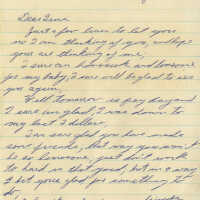 Dear Gene
Just a few lines to let you
no I am thinking of you, and hope
you are thinking of me.
I sure am homesick and lonesome
for my baby, I sure will be glad to see
you again,
Well tomorrow is pay day and
I sure am glad, I was down to
my last 2 dollar.
I am sure glad you have made
some friends, that way you won't
be so lonesome, just don't work
to hard in that yard, but in a way
it lets your yard for something to
do